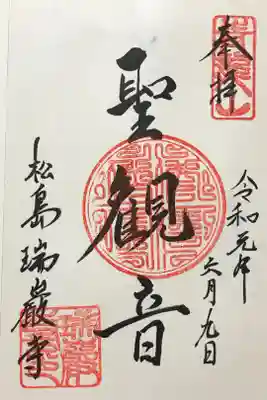 奉拝
令和元年
六月九日
聖観音
松島瑞巌寺